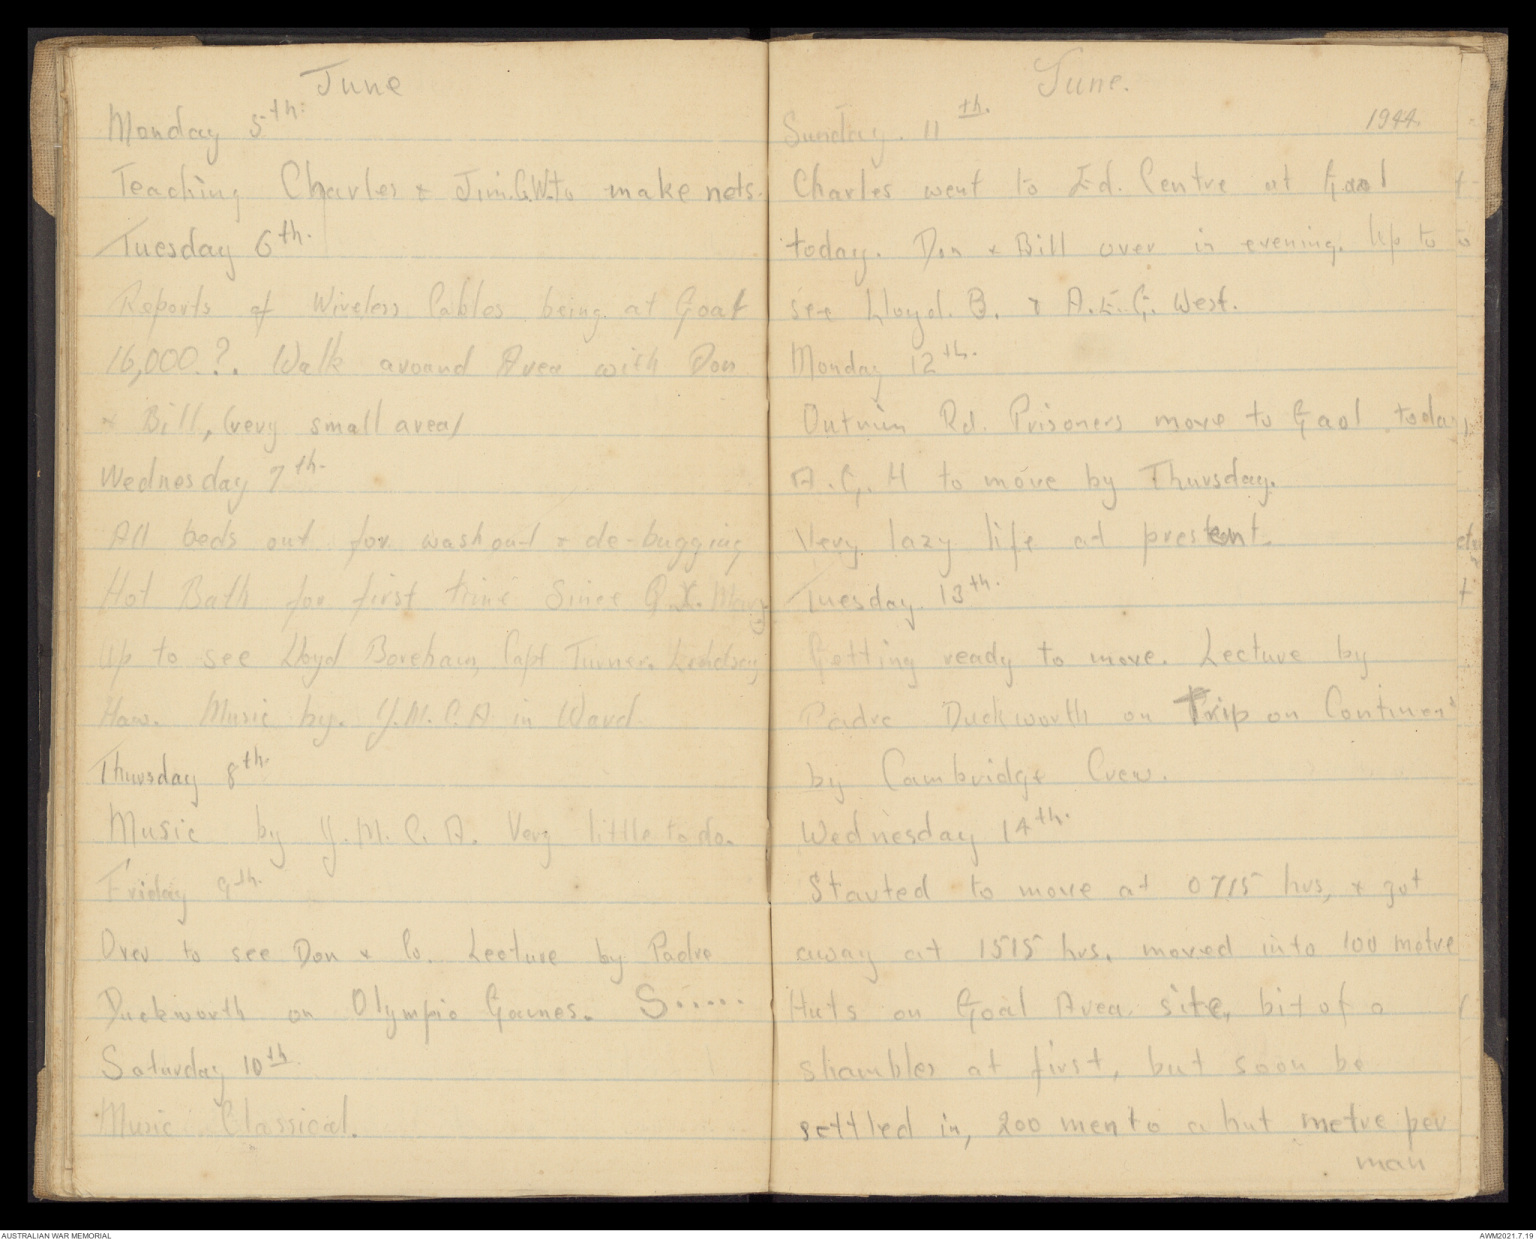 June
Monday 5th.
Teaching Charles & Jim. G.W. to make nets.
Tuesday 6th.
Reports of Wireless Cables being at Goal
16,000.?. Walk around Area with Don
& Bill, (very small area)
Wednesday 7th.
All beds out for washout & de-bugging
Hot Bath for first time since Q.X. Mary
Up to see Lloyd Boreham, Capt Turner. Lindsay
Haw. Music by. Y.M.C.A in Ward
Thursday 8th.
Music by Y.M.C.A. Very little to do.
Friday 9th.
Over to see Don & Co. Lecture by Padre
Duckworth on Olympic Games. S.....
Saturday 10th.
Music Classical.
June.
1944.
Sunday. 11th.
Charles went to Ed. Centre at Gaol
today. Don & Bill over in evening. Up to
see Lloyd. B. & A.E.G. West.
Monday 12th.
Outrim Rd. Prisoners move to Gaol today
A.G.H to move by Thursday.
Very lazy life at present.
Tuesday 13th.
Getting ready to move. Lecture by
Padre Duckworth on Trip on Continent
by Cambridge Crew.
Wednesday 14th.
Started to move at 0715 hrs, & got
away at 1515 hrs. moved into 100 metre
Huts on Goal Area site, bit of a
shambles at first, but soon be
settled in, 200 men to a hut metre per
man
AUSTRALIAN WAR MEMORIAL
AWM2021.7.19